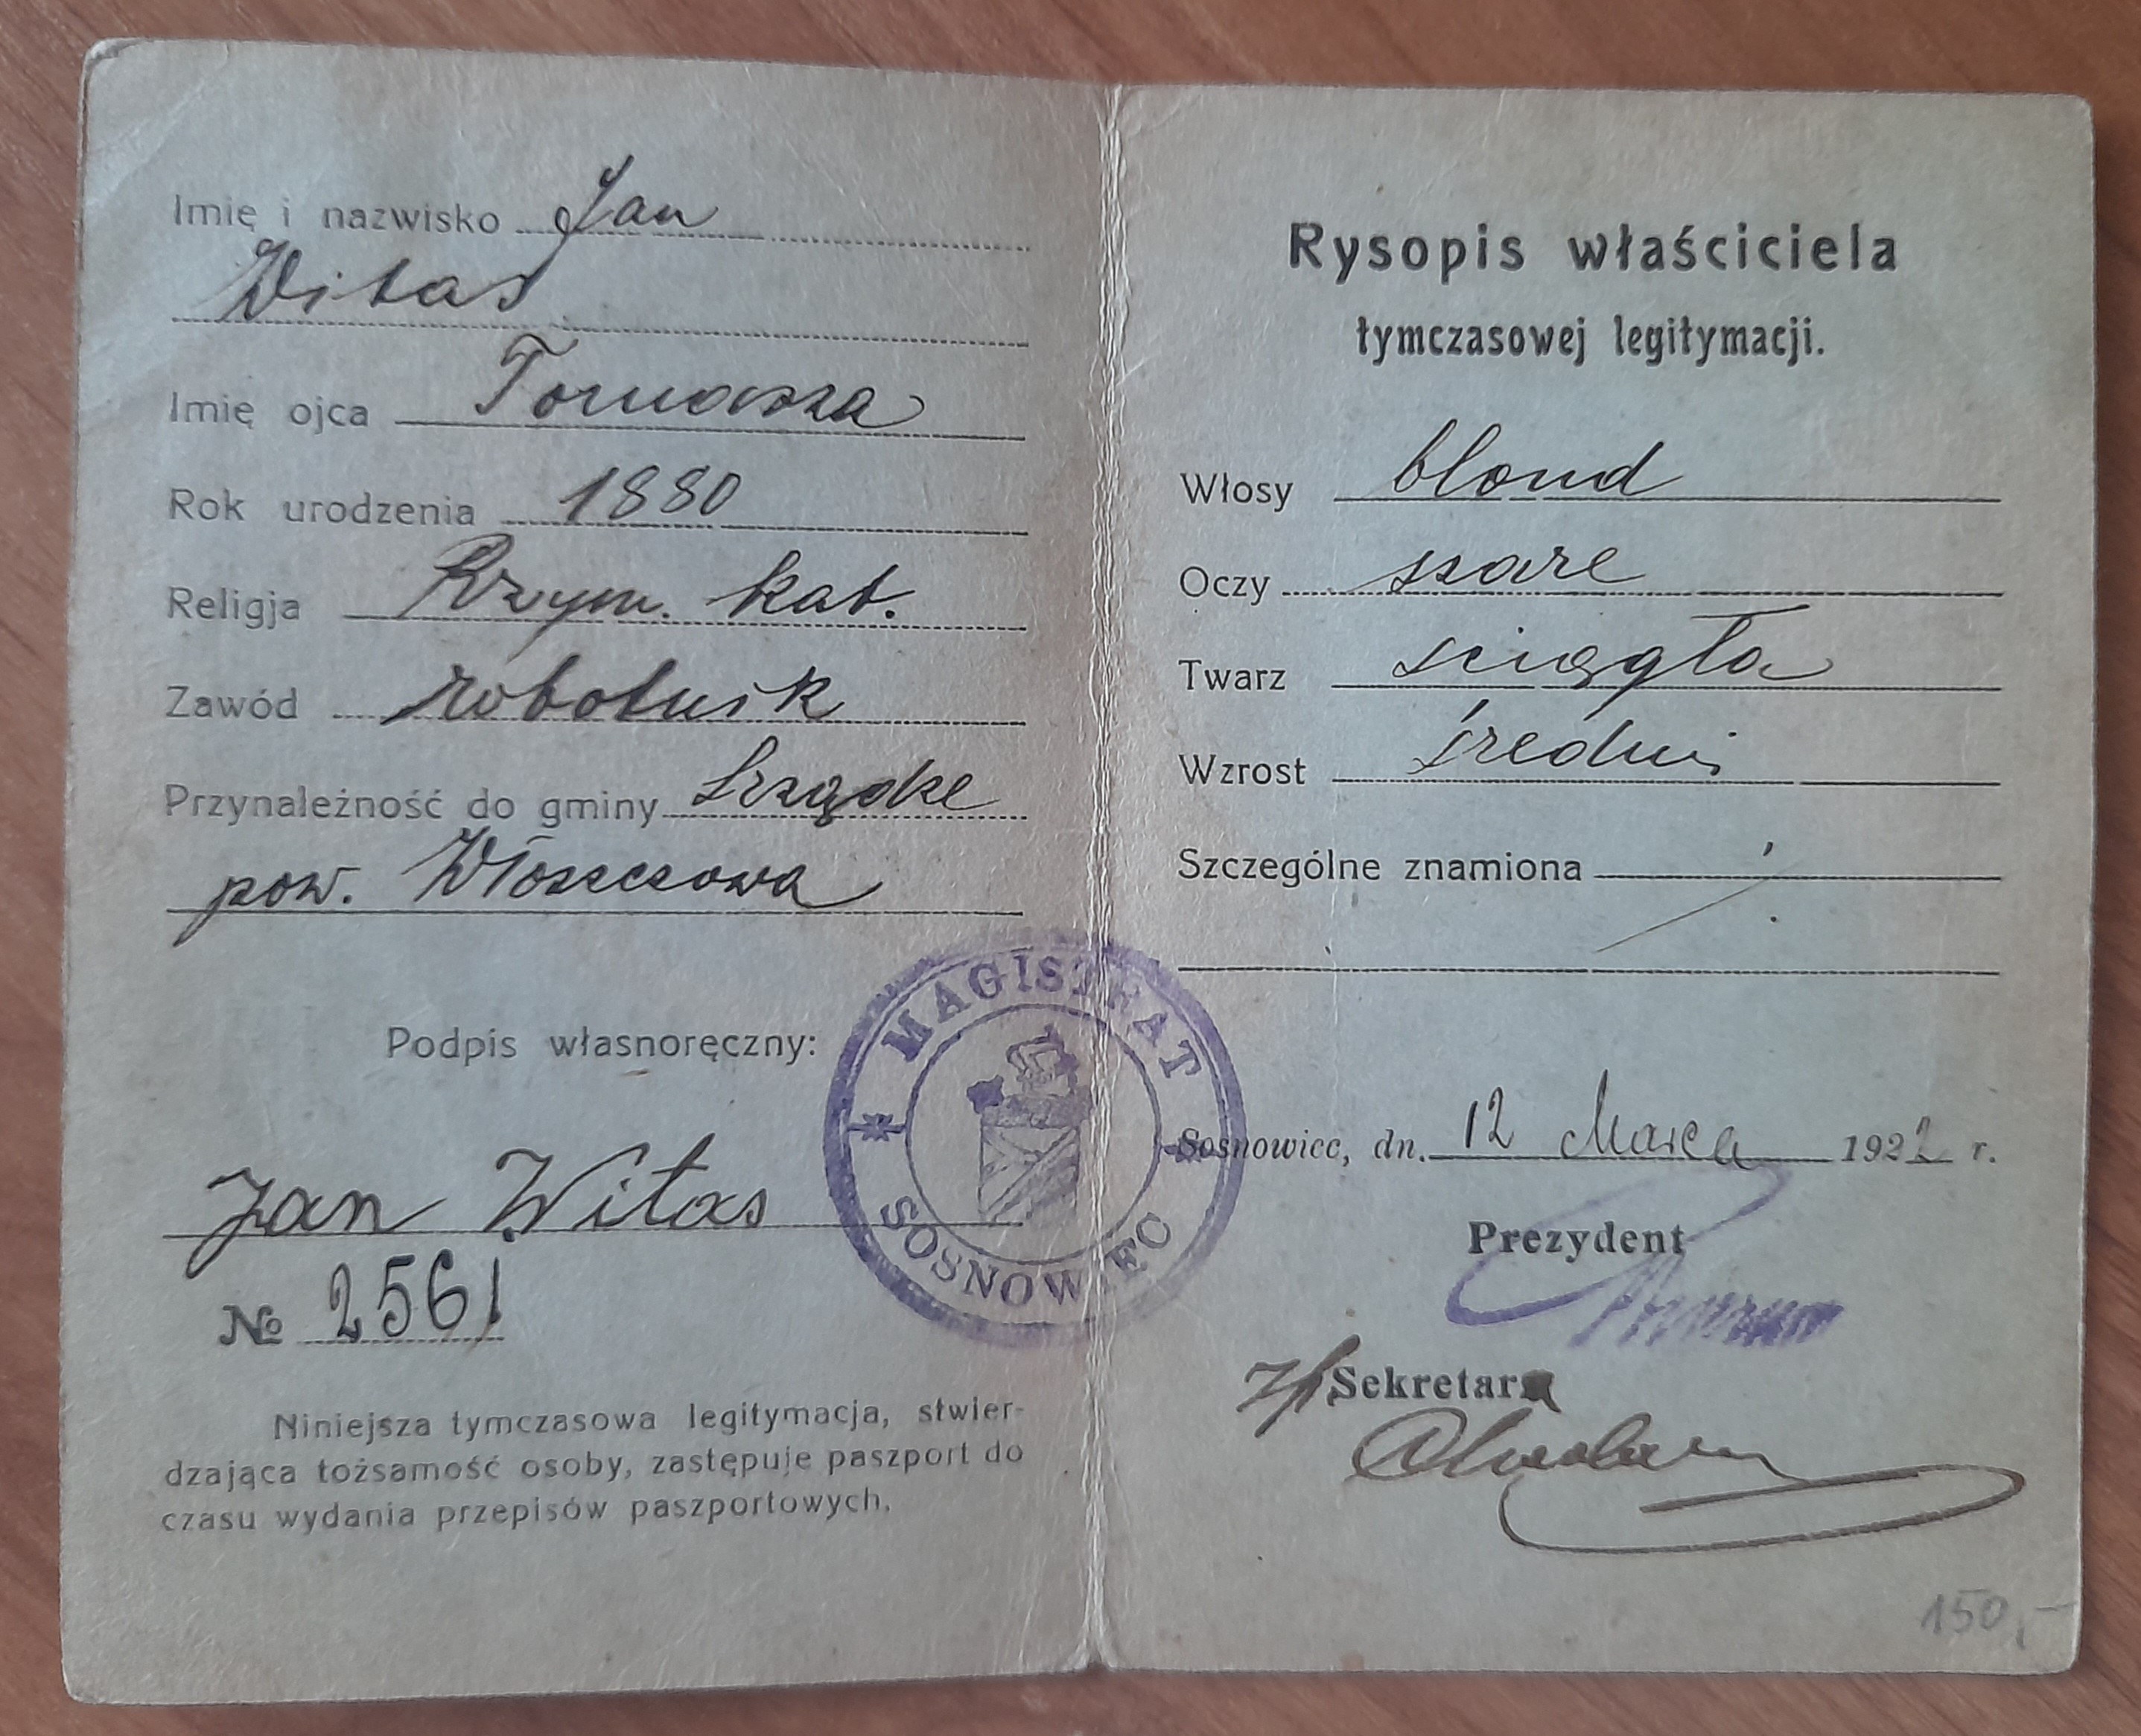 Imię i nazwisko Jan
Witas
Imię ojca Tomasza
Rok urodzenia 1880
Religja Rzym. kat.
Zawód robotnik
Przynależność do gminy
pow. Włoszczowa
Podpis własnoręczny:
Jan Witas
№ 2561
Niniejsza tymczasowa legitymacja, stwier-
dzająca tożsamość osoby, zastępuje paszport do
czasu wydania przepisów paszportowych.
MAGISTRAT
SOSNOWIEC
Rysopis właściciela
tymczasowej legitymacji.
Włosy blond
Oczy szare
Twarz sciągła
Wzrost średni
Szczególne znamiona
Sosnowiec, dn. 12 Marca 1922 r.
Prezydent
Sekretarz
150,-